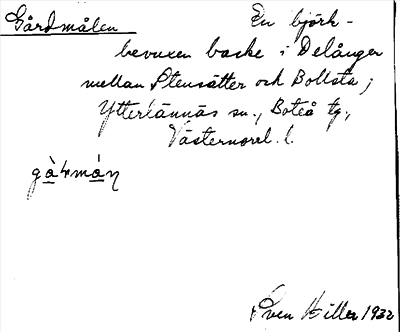 Gårdmålen En björk-
bevuxen backe i Delånger
mellan Stensätter och Bollsta;
Ytterlännäs sn., Boteå tg.,
Västernorrl. l.
Sven Hiller 1932